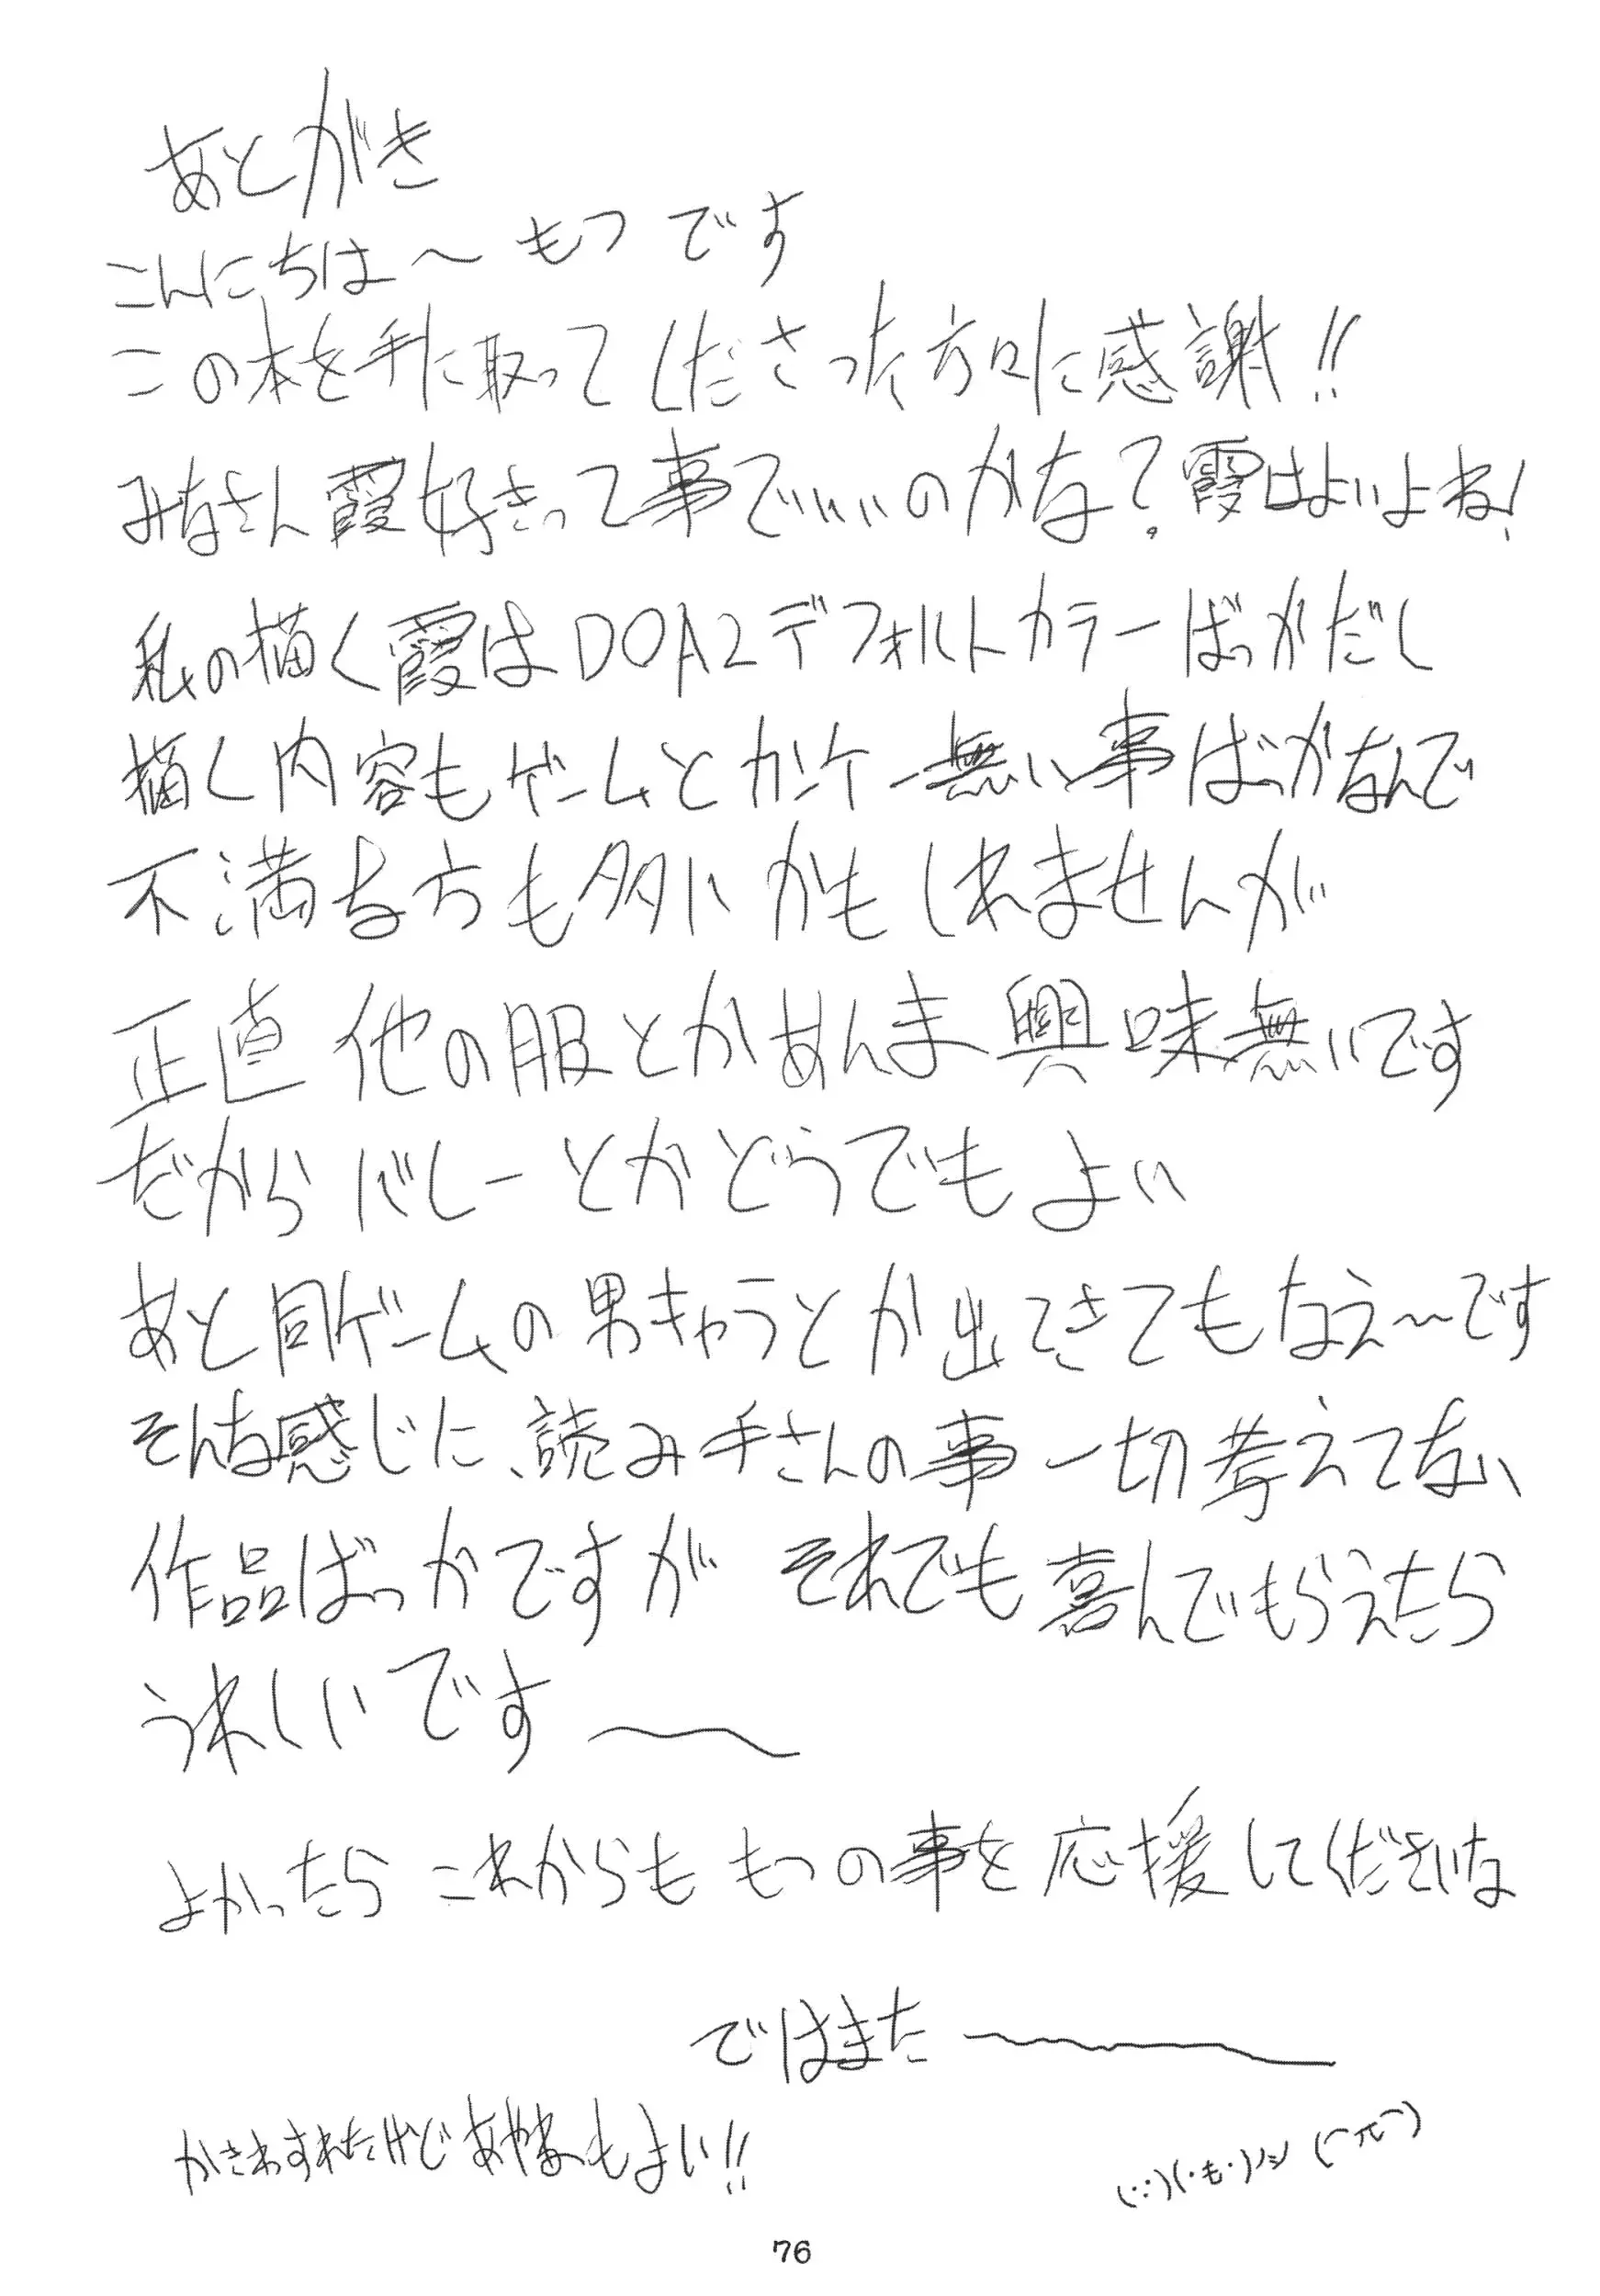 あとがき
こんにちは〜 もつ です
この本を手に取ってくださった方々に感謝!!
みなさん霞好きって事でいいのかな? 霞はよいよね!
私の描く霞はDOA2デフォルトカラーばっかだし
描く内容もゲームとカンケー無い事ばっかなんで
不満な方も多いかもしれませんが
正直 他の服とかあんま興味無いです
だから バレーとかどうでもよい
あと同ゲームの男キャラとか出てきてもなえ〜です
そんな感じに、読み手さんの事一切考えてない
作品ばっかですが それでも喜んでもらえたら
うれしいです〜
よかったら これからも もつの事を応援してくださいな
ではまた〜
かきわすれたけど あやねもよい!!
(∵)(・も・)ノシ (⌒π⌒)
76